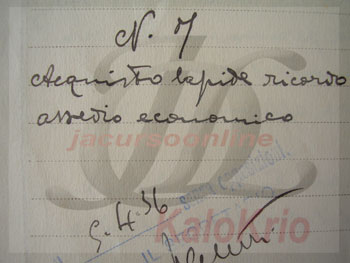 N. 7
Acquisto lapide ricordo
assedio economico
jacursoonline
5.4.36
KaloKrio